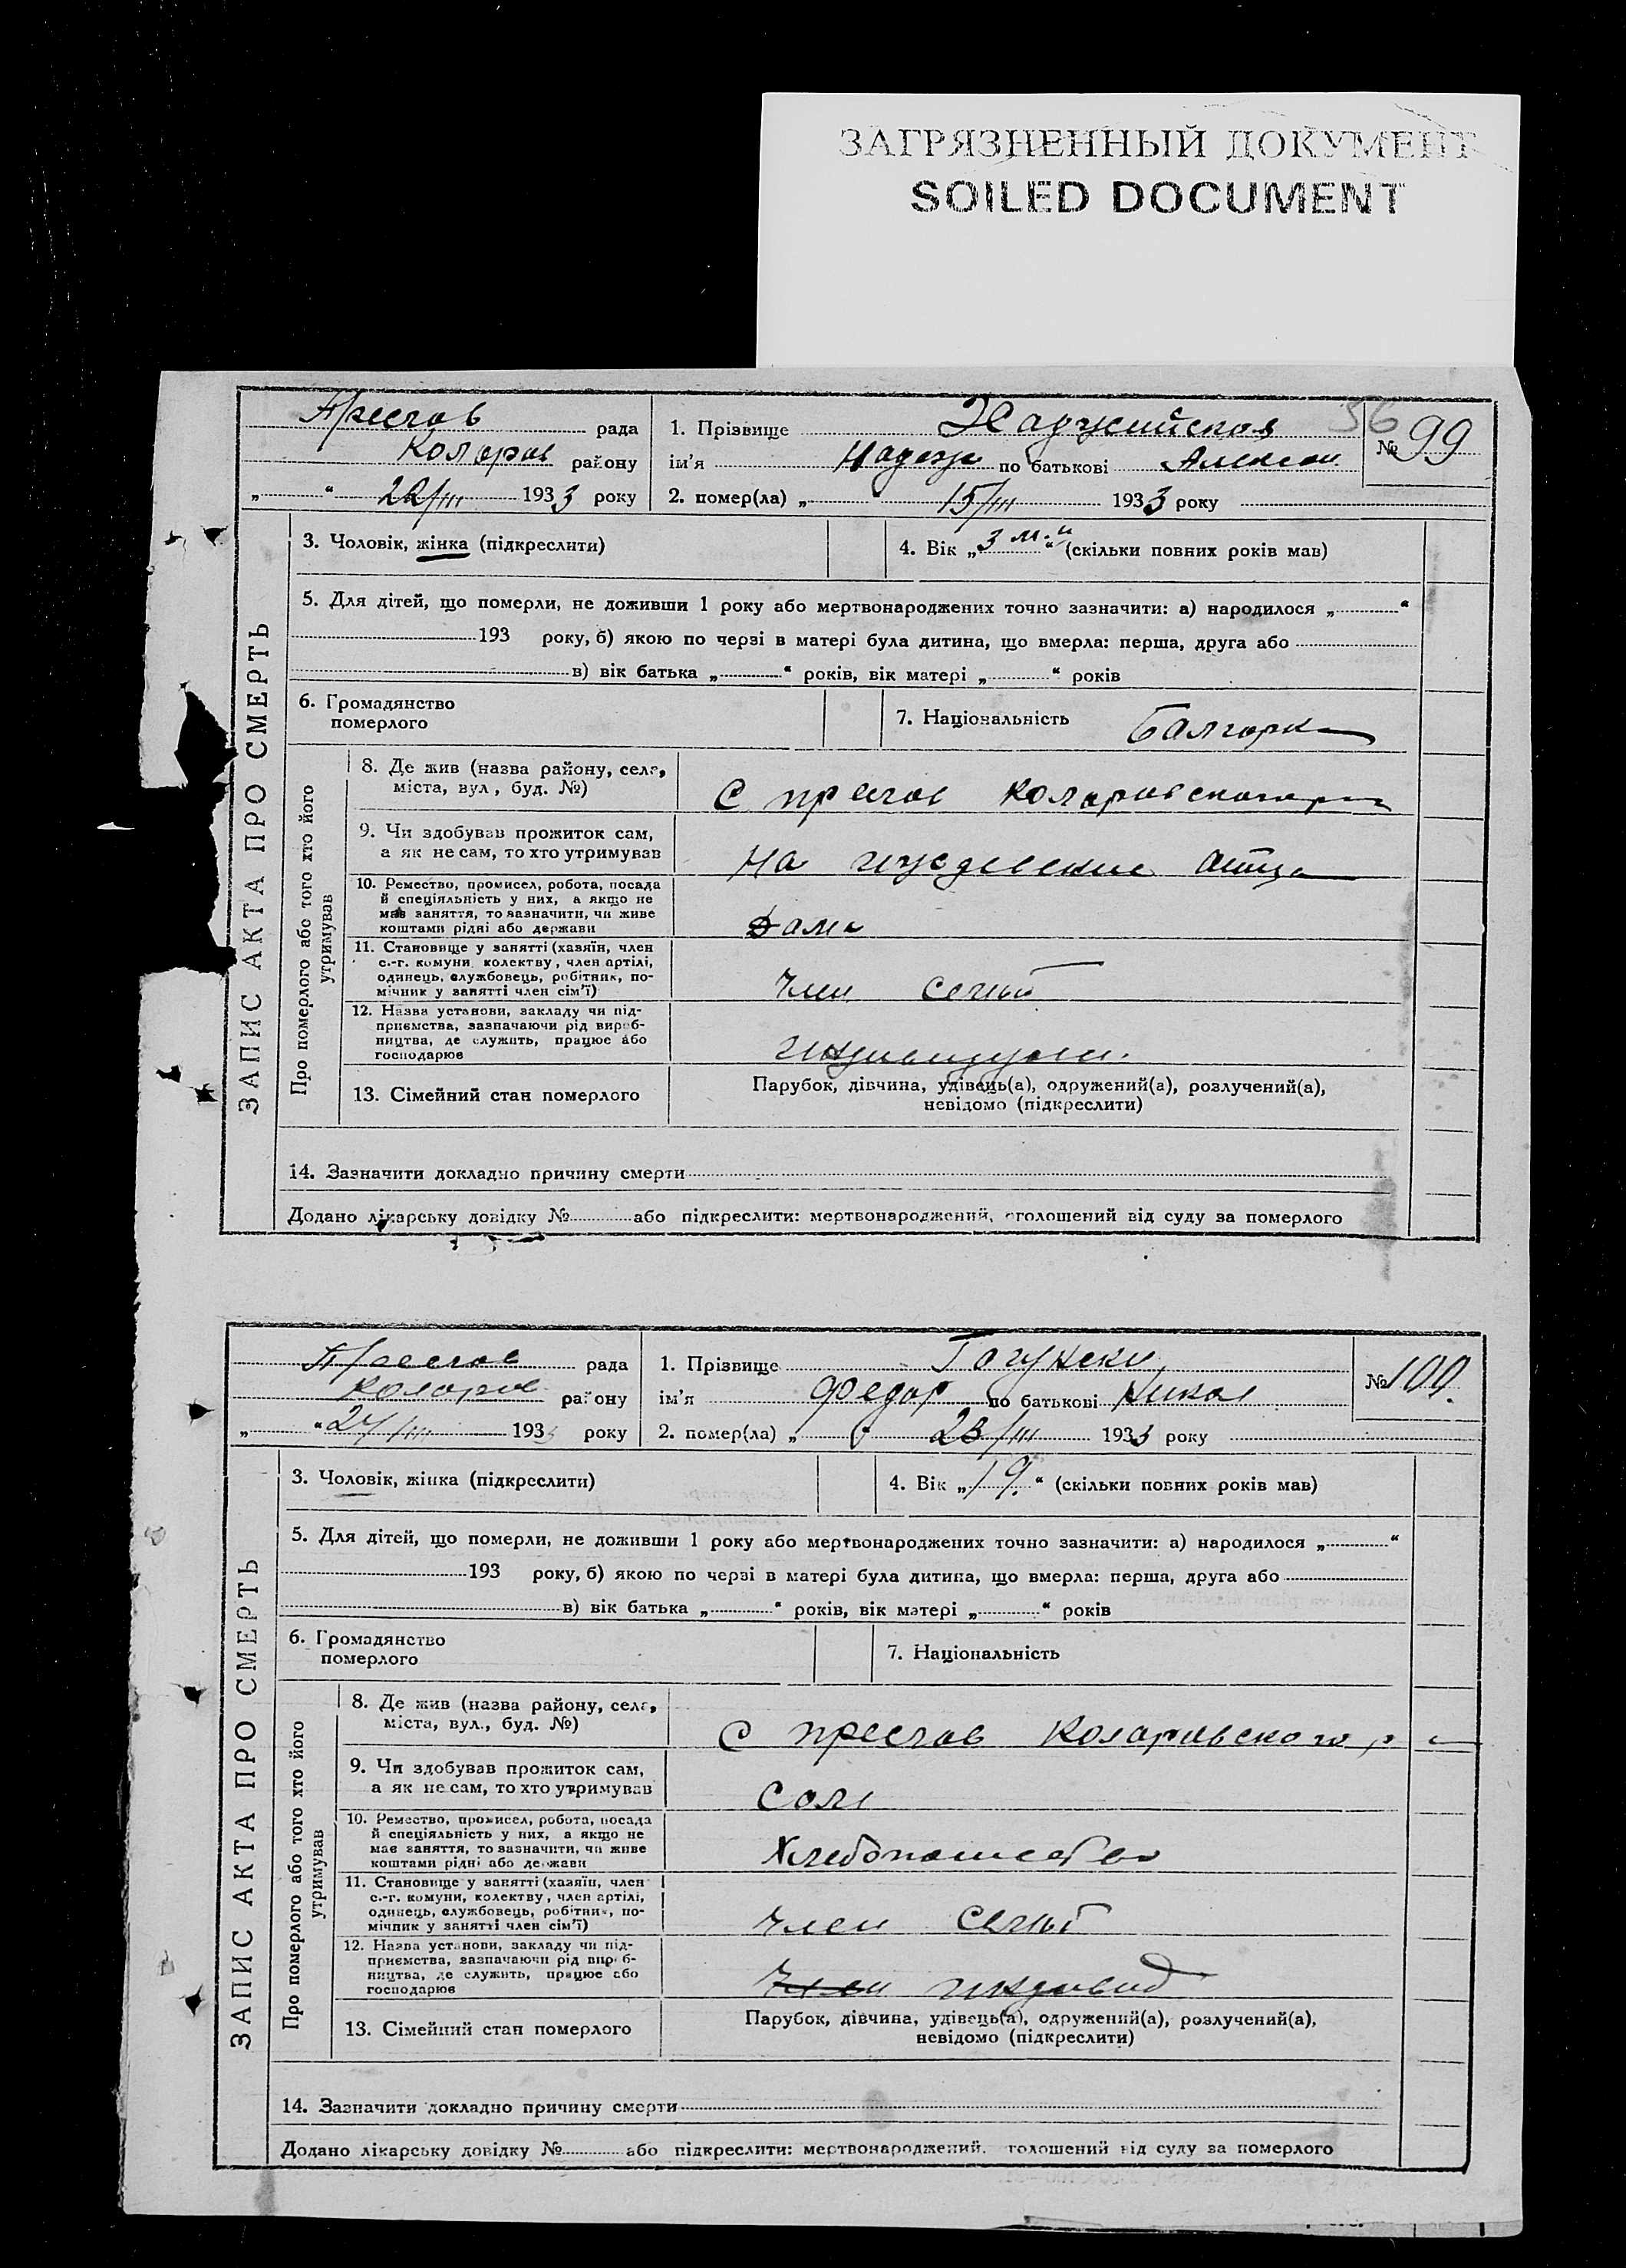 ЗАГРЯЗНЕННЫЙ ДОКУМЕНТ
SOILED DOCUMENT
56
Преслав рада
Колоров району
„ “ 22/III 1933 року
1. Прізвище
№ 99
ім'я Надежд по батькові Алексан
2. помер(ла) „ 15/III 1933 року
ЗАПИС АКТА ПРО СМЕРТЬ
3. Чоловік, жінка (підкреслити)
4. Вік „3 м-ц“ (скільки повних років мав)
5. Для дітей, що померли, не доживши 1 року або мертвонароджених точно зазначити: а) народилося „ “
193 року, б) якою по черзі в матері була дитина, що вмерла: перша, друга або
в) вік батька „ “ років, вік матері „ “ років
6. Громадянство
померлого
7. Національність Балгорка
Про померлого або того хто його
утримував
8. Де жив (назва району, села,
міста, вул., буд. №)
С преслав Коларовского
9. Чи здобував прожиток сам,
а як не сам, то хто утримував
На иждевение отца
10. Ремество, промисел, робота, посада
й спеціяльність у них, а якщо не
мав заняття, то зазначити, чи живе
коштами рідні або держави
Дома
11. Становище у занятті (хазяїн, член
с.-г. комуни, колектву, член артілі,
одинець, службовець, робітник, по-
мічник у занятті член сім'ї)
Член семьи
12. Назва установи, закладу чи під-
приємства, зазначаючи рід вироб-
ництва, де служить, працює або
господарює
13. Сімейний стан померлого
Парубок, дівчина, удівець(а), одружений(а), розлучений(а),
невідомо (підкреслити)
14. Зазначити докладно причину смерти
Додано лікарську довідку № або підкреслити: мертвонароджений, оголошений від суду за померлого
Преслав рада
Колоров району
„ “ 27/III 1933 року
1. Прізвище Гогунски
№ 100
ім'я Федор по батькові Никол
2. помер(ла) „ 23/III 1933 року
ЗАПИС АКТА ПРО СМЕРТЬ
3. Чоловік, жінка (підкреслити)
4. Вік „19“ (скільки повних років мав)
5. Для дітей, що померли, не доживши 1 року або мертвонароджених точно зазначити: а) народилося „ “
193 року, б) якою по черзі в матері була дитина, що вмерла: перша, друга або
в) вік батька „ “ років, вік матері „ “ років
6. Громадянство
померлого
7. Національність
Про померлого або того хто його
утримував
8. Де жив (назва району, села,
міста, вул., буд. №)
С преслав Коларовского р
9. Чи здобував прожиток сам,
а як не сам, то хто утримував
Сам
10. Ремество, промисел, робота, посада
й спеціяльність у них, а якщо не
має заняття, то зазначити, чи живе
коштами рідні або держави
Хлебопашество
11. Становище у занятті (хазяїн, член
с.-г. комуни, колектву, член артілі,
одинець, службовець, робітник, по-
мічник у занятті член сім'ї)
Член семьи
12. Назва установи, закладу чи під-
приємства, зазначаючи рід вироб-
ництва, де служить, працює або
господарює
Член индивид
13. Сімейний стан померлого
Парубок, дівчина, удівець(а), одружений(а), розлучений(а),
невідомо (підкреслити)
14. Зазначити докладно причину смерти
Додано лікарську довідку № або підкреслити: мертвонароджений, голошений від суду за померлого